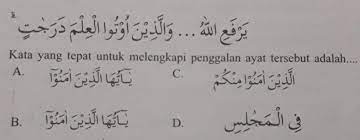 يَرْفَعِ اللهُ ... وَالَّذِيْنَ اُوْتُوا الْعِلْمَ دَرَجٰتٍ
Kata yang tepat untuk melengkapi penggalan ayat tersebut adalah....
A. يٰٓاَيُّهَا الَّذِيْنَ اٰمَنُوْٓا C. الَّذِيْنَ اٰمَنُوْا مِنْكُمْ
B. يٰٓاَيُّهَا الَّذِيْنَ اٰمَنُوْٓا D. فِى الْمَجٰلِسِ